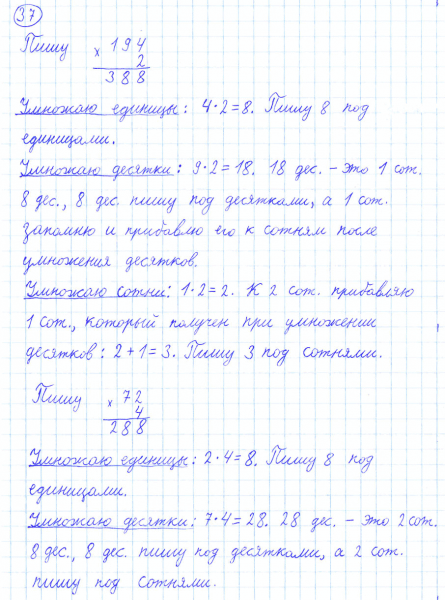 37
Пишу × 194
2
388
Умножаю единицы: 4·2=8. Пишу 8 под
единицами.
Умножаю десятки: 9·2=18. 18 дес. – это 1 сот.
8 дес., 8 дес. пишу под десятками, а 1 сот.
запомню и прибавлю его к сотням после
умножения десятков.
Умножаю сотни: 1·2=2. К 2 сот. прибавляю
1 сот., который получен при умножении
десятков: 2+1=3. Пишу 3 под сотнями.
Пишу × 72
4
288
Умножаю единицы: 2·4=8. Пишу 8 под
единицами.
Умножаю десятки: 7·4=28. 28 дес. – это 2 сот.
8 дес., 8 дес. пишу под десятками, а 2 сот.
пишу под сотнями.